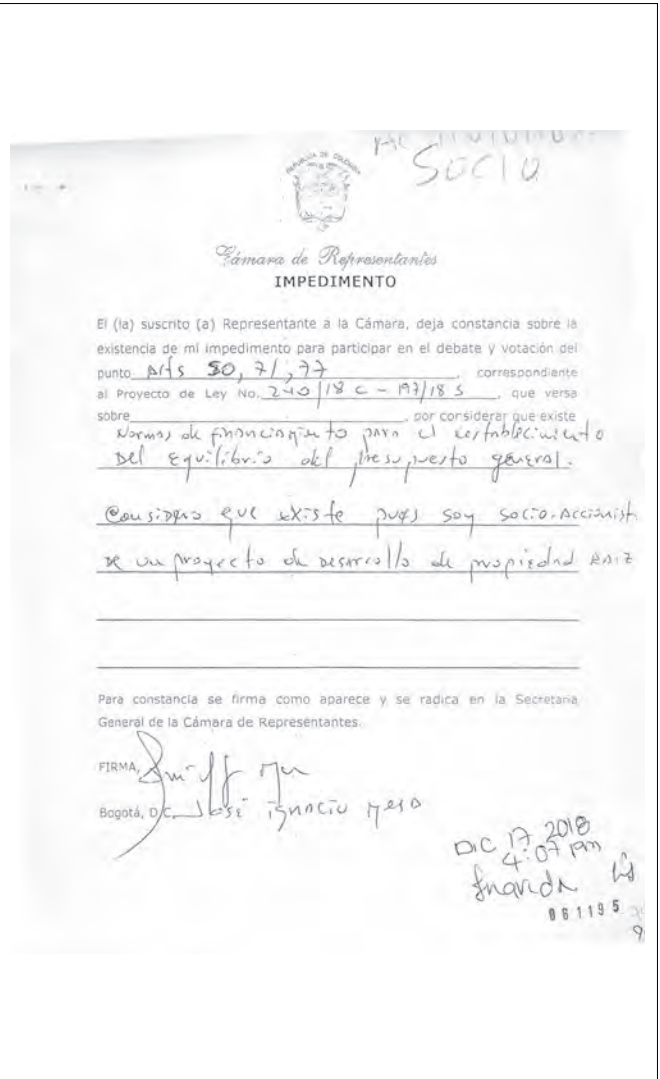 SOCIO
REPUBLICA DE COLOMBIA
Cámara de Representantes
IMPEDIMENTO
El (la) suscrito (a) Representante a la Cámara, deja constancia sobre la
existencia de mi impedimento para participar en el debate y votación del
punto Arts 50, 71, 77, correspondiente
al Proyecto de Ley No. 240/18 C - 197/18 S, que versa
sobre , por considerar que existe
Normas de financiamiento para el restablecimiento
Del Equilibrio del presupuesto general.
Considero que existe pues soy socio-Accionist.
de un proyecto de Desarrollo de propiedad RAIZ
Para constancia se firma como aparece y se radica en la Secretaria
General de la Cámara de Representantes.
FIRMA,
Bogotá, D.C. José ignacio mesa
DIC 17 2018
4:07 pm
061195